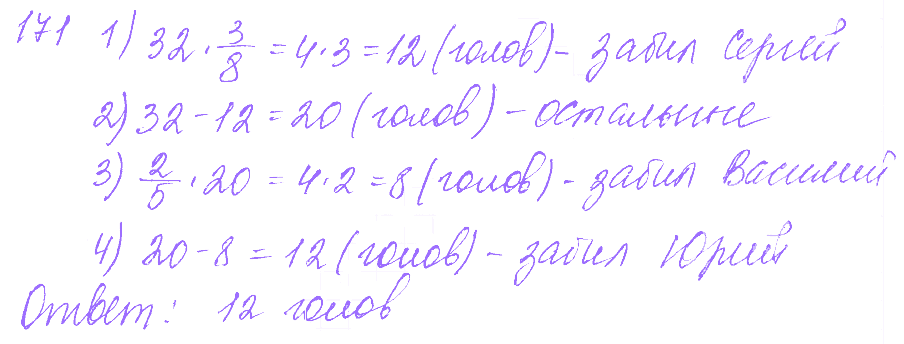 171 1) 32 · 3/8 = 4 · 3 = 12 (голов) - забил Сергей
2) 32 - 12 = 20 (голов) - остальные
3) 2/5 · 20 = 4 · 2 = 8 (голов) - забил Василий
4) 20 - 8 = 12 (голов) - забил Юрий
Ответ: 12 голов